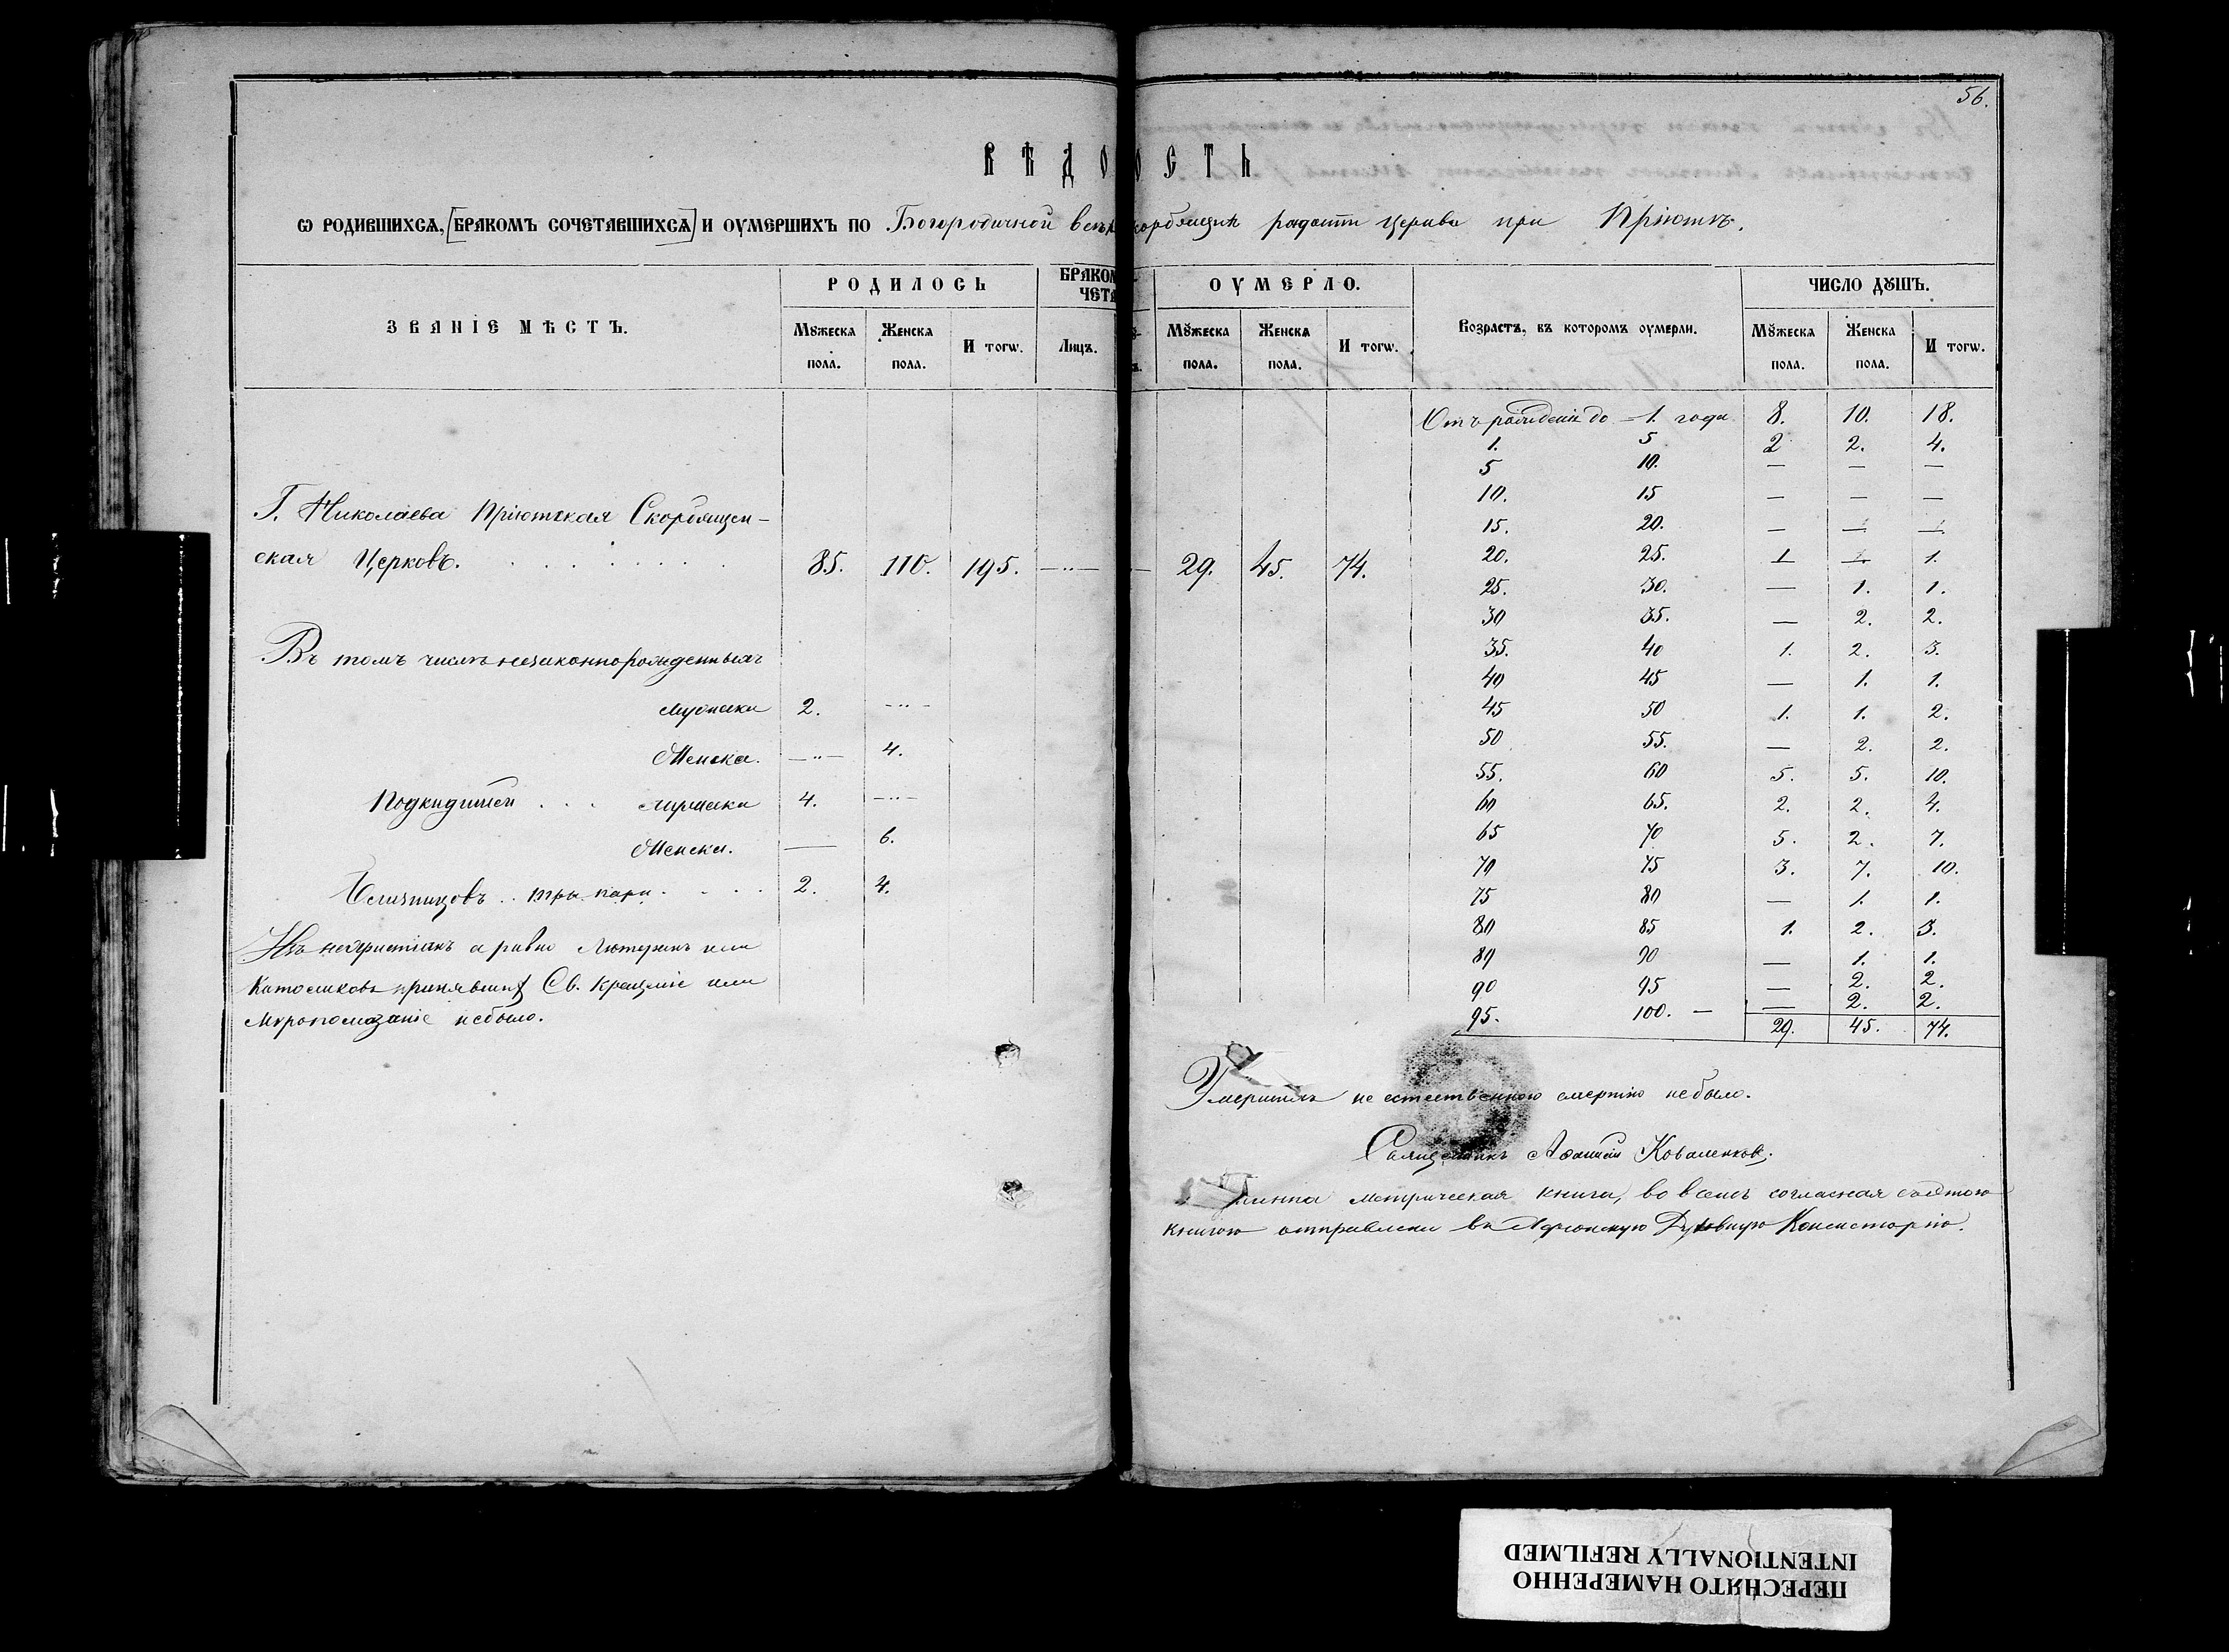 56.
ВѢДО ОСТЬ
Ѡ РОДИВШИХСѦ, [БРАКОМЪ СОЧЕТАВШИХСѦ] И ОУМЕРШИХЪ ПО Богородичной всѣхъ скорбящихъ радости церкви при Пріютѣ.
ЗВАНІЕ МѢСТЪ. РОДИЛОСЬ БРАКОМ ЧЕТА ОУМЕРЛО. Возрастъ, въ которомъ оумерли. ЧИСЛО ДꙊШЪ.
Мꙋжеска пола. Женска пола. И тогѡ. Лицъ. Мꙋжеска пола. Женска пола. И тогѡ. Мꙋжеска пола. Женска пола. И тогѡ.
Г. Николаева Пріютская Скорбящен-
ская Церковь. 85. 110. 195. — 29. 45. 74.
Въ томъ числѣ незаконнорожденныхъ
мужеска 2. —
Женска. — 4.
Подкидышей . . . мужеска 4. —
Женска. — 6.
Близнецовъ .. три пары . . . . 2. 4.
Изъ нехристіанъ а равно Лютеранъ или
Католиковъ принявшихъ Св. Крещеніе или
Мѵропомазаніе небыло.
Отъ рожденія до — 1. года 8. 10. 18.
1. 5 2 2. 4.
5 10. — — —
10. 15 — — —
15. 20. — — —
20. 25. 1 — 1.
25. 30. — 1. 1.
30 35. — 2. 2.
35. 40 1. 2. 3.
40 45 — 1. 1.
45 50 1. 1. 2.
50 55. — 2. 2.
55. 60 5. 5. 10.
60 65. 2. 2. 4.
65 70 5. 2. 7.
70 75 3. 7. 10.
75 80 — 1. 1.
80 85 1. 2. 3.
89 90 — 1. 1.
90 95 — 2. 2.
95. 100. — — 2. 2.
29. 45. 74.
Умершихъ не естественною смертію небыло.
Священникъ Коваленков.
метрическая книга, во всемъ согласная съ этою
книгою отправлена въ Херсонскую Духовную Консисторію.
ПЕРЕСНЯТО НАМЕРЕННО
INTENTIONALLY REFILMED